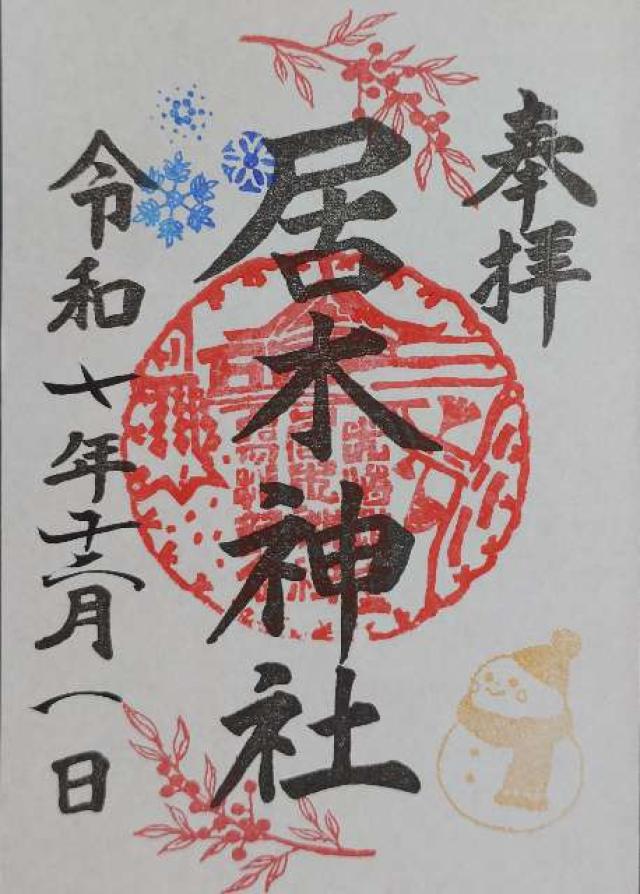 奉拝
居木神社
令和七年十二月一日